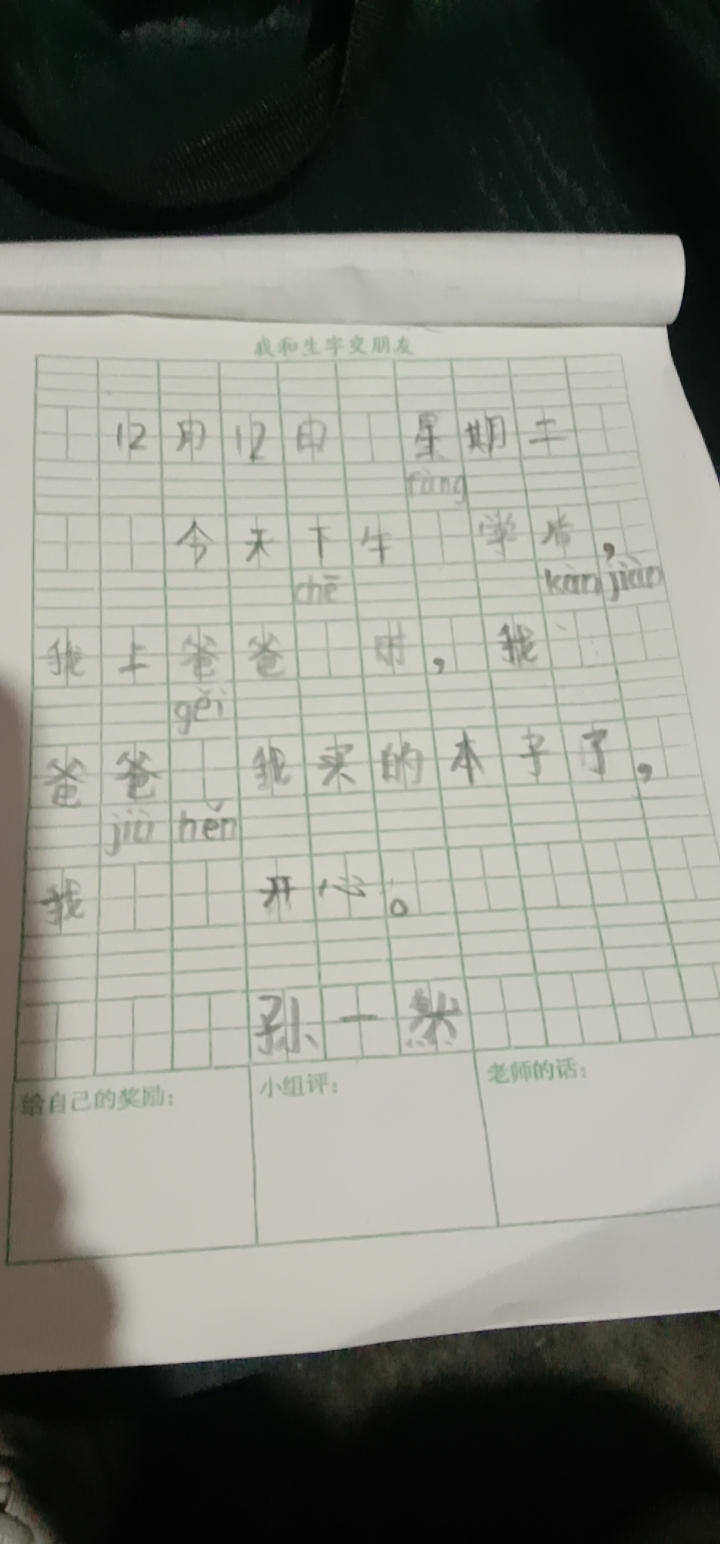 我和生字交朋友
12月12日 星期二
fàng
今天下午 学后，
chē kàn jiàn
我上爸爸 时，我
gěi
爸爸 我买的本子了，
jiù hěn
我 开心。
孙一然
给自己的奖励： 小组评： 老师的话：